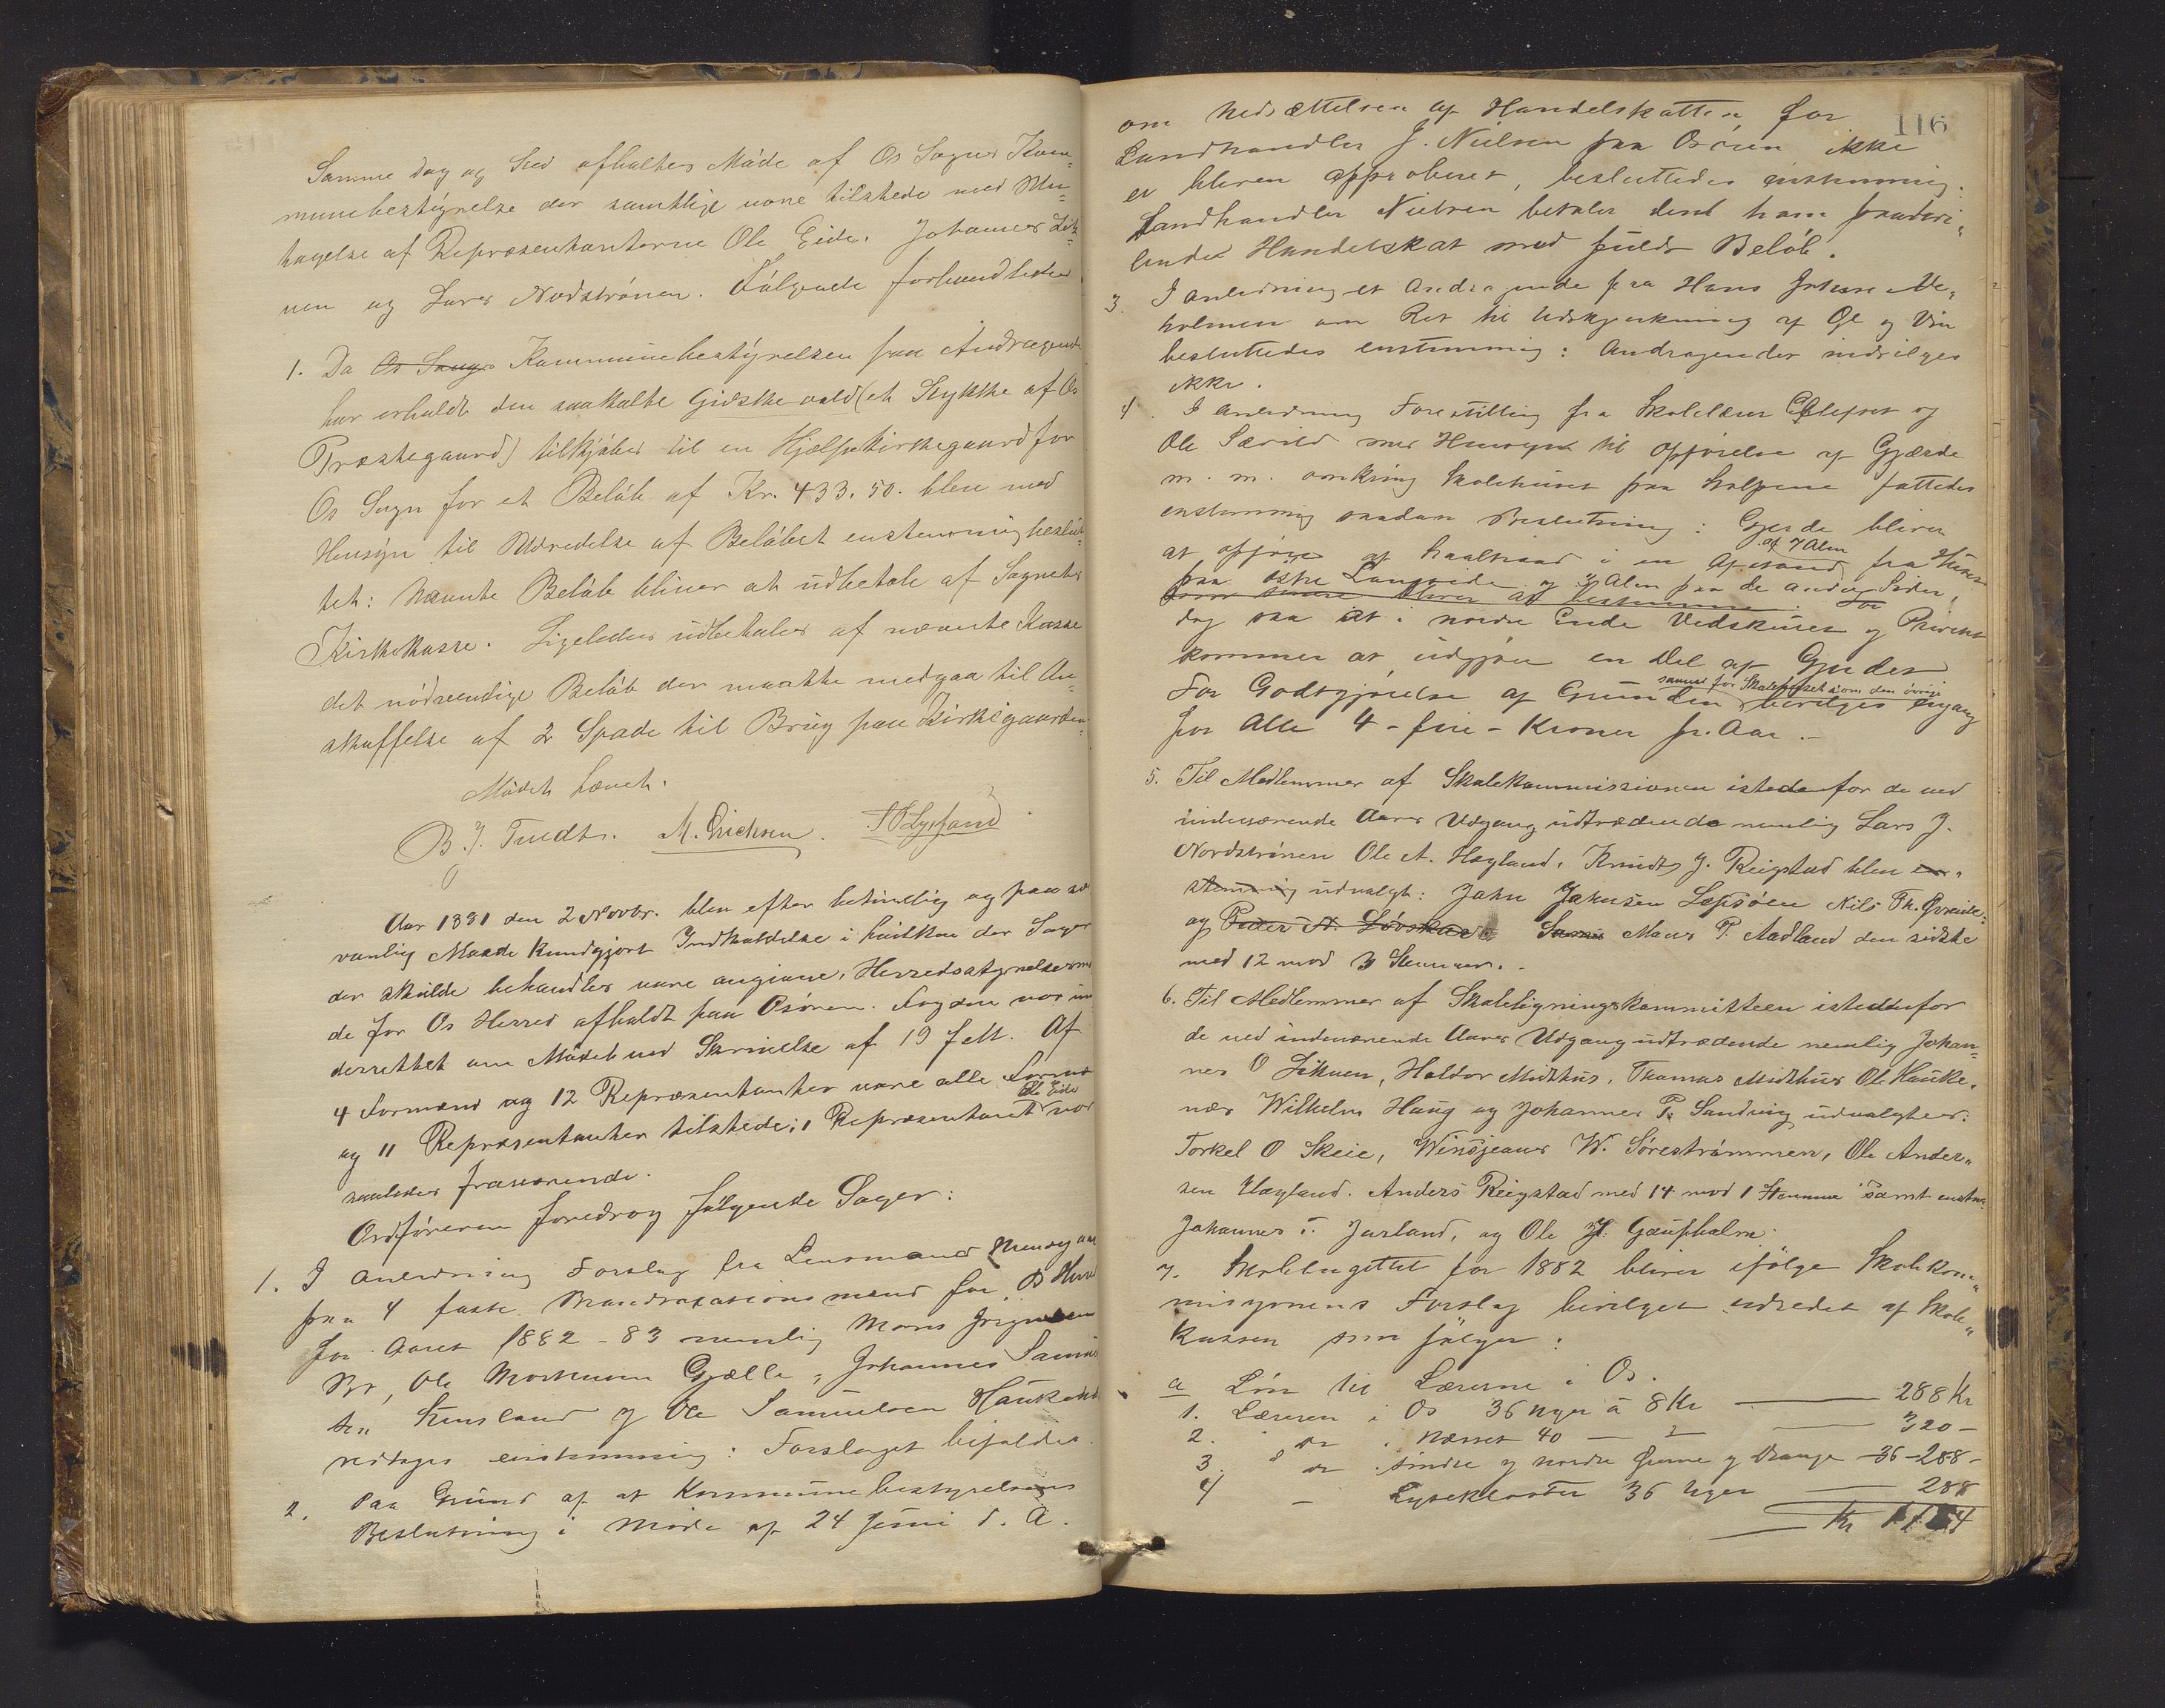 Samme Dag og Sted afholdtes Møde af Os Sogns Kom=
munebestyrelse der samtlige vare tilstede med Und=
tagelse af Repræsentanterne Ole Eide. Johannes Lek=
nen og Lars Nordstrønen. Følgende forhandledes
1. Da Os Sangs Kommunebestyrelsen paa Andragende
har erholdt den saakaldte Gidskevold (et Stykke af Os
Præstegaard) tilkjøbes til en Hjælpekirkegaard for
Os Sogn for et Beløb af Kr. 433.50. blev med
Hensyn til Udredelse af Beløbet enstemmig beslut=
tet: Nævnte Beløb bliver at udbetale af Sognets
Kirkekasse. Ligeledes udbetales af nævnte Kasse
det nødvendige Beløb der maatte medgaa til An=
skaffelse af 2 Spade til Brug paa Kirkegaarden.
Mødet hævet.
B. J. Tvedt. M. Erichsen.
Aar 1881 den 2 Novbr. blev efter betimelig og paa sæd
vanlig Maade kundgjort Indkaldelse i hvilken der Sager
der skulde behandles vare angivne, Herredsstyrelsesmø
de for Os Herred afholdt paa Osøren. Fogden var un
derrettet om Mødet ved Skrivelse af 19 f. Mt. Af
4 Formænd og 12 Repræsentanter vare alle Formæ
og 11 Repræsentanter tilstede; 1 Repræsentant Ole Eide var
saaledes fraværende.
Ordføreren foredrog følgende Sager:
1. I Anledning Forslag fra Lensmand
paa 4 faste Brandtaxationsmænd for Os Herred
for Aaret 1882-83 nemlig Mons
Ole Mortensen Gjælle, Johannes
og Ole Samuelsen
vedtages enstemmig: Forslaget bifaldes.
2. Paa Grund af at Kommunebestyrelsens
Beslutning i Møde af 24 Juni d. A.
116
om Nedsættelsen af Handelskatten for
Landhandler J. Nielsen paa Osøren ikke
er bleven approberet, besluttedes enstemmig:
Landhandler Nielsen betaler dend ham paahvi=
lende Handelskat med fuldt Beløb.
3. I Anledning et Andragende fra Hans
holmen om Ret til Udskjenkning af Øl og Vin
besluttedes enstemmig: Andragendet indvilges
ikke.
4. I Anledning Forestilling fra Skolelærer og
Ole Særvold med Hensyn til opførelse af Gjærde
m. m. omkring Skolehuset paa fattedes
enstemmig saadan Beslutning: Gjærde bliver
at opføre af i en Afstand af 7 Alen fra Huset
paa østre Langside og 3 Alen paa de andre Sider,
dog saa at i nordre Ende Vedskuret og Privet
kommer at udgjøre en Del af Gjerdet
For Godtgjørelse af Grunden samt for Skolehuset som den øvrige bevilges engang
for Alle 4 - fire - Kroner pr. Aar.-
5. Til Medlemmer af Skolekommissionen istedenfor de ved
indeværende Aars Udgang udtrædende nemlig Lars J.
Nordstrønen Ole A. Hægland, Knudt J. Reigstad blev en=
stemmig udvalgt: John Johnsen Lepsøen Nils Th. Øvreide:
og Peder N. Løvskar Mons P. Aadland den sidste
med 12 mod 3 Stemmer.
6. Til Medlemmer af Skoleligningskommitteen istedenfor
de ved indeværende Aars Udgang udtrædende nemlig Johan=
nes O Leknen, Haldor Midthus, Thomas Midthus Ole Hauke=
næs Wilhelm Haug og Johannes P. Sandvig udvalgtes:
Torkel O Skeie, Winsjeans W. Sørestrømmen, Ole Ander=
sen Hægland. Anders Reigstad med 14 mod 1 Stemme samt enstem
Johannes T. Jarland, og Ole H. Gaupholm.
7. Skolebugettet for 1882 bliver ifølge Skolekom=
misjonens Forslag bevilget udredet af Skole=
kassen som følger:
a Løn til Lærerne i Os.
1. Læreren i Os 36 Uger á 8 Kr — 288 Kr
2. " do i Næsset 40 — " — 320 -
3. " do søndre og nordre Øerne og Drange - 36 - 288 -
4 — Lysekloster 36 Uger — 288
Kr 1184